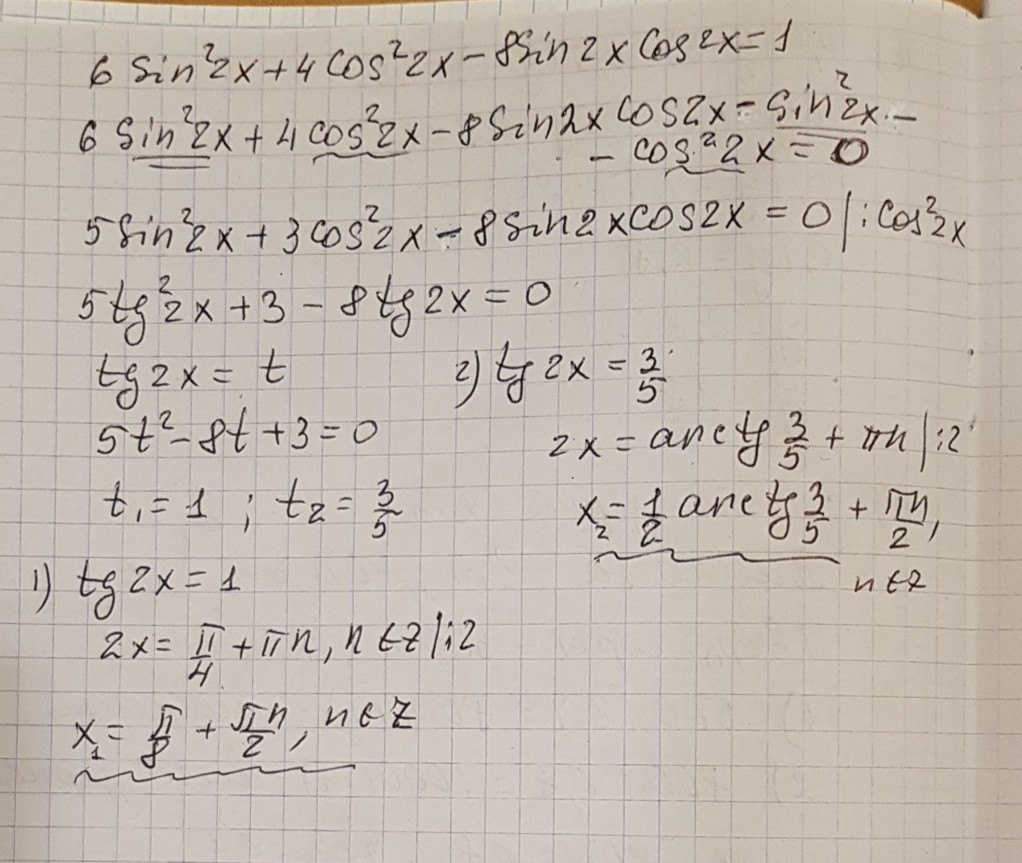 6 sin²2x + 4 cos²2x − 8sin2x cos2x = 1
6 sin²2x + 4 cos²2x − 8sin2x cos2x − sin²2x −
− cos²2x = 0
5 sin²2x + 3 cos²2x − 8 sin2x cos2x = 0 | : cos²2x
5 tg²2x + 3 − 8 tg2x = 0
tg2x = t
5t² − 8t + 3 = 0
t₁ = 1 ; t₂ = 3/5
1) tg2x = 1
2x = π/4 + πn, n∈z | :2
x₁ = π/8 + πn/2, n∈z
2) tg2x = 3/5
2x = arctg 3/5 + πn | :2
x₂ = 1/2 arctg 3/5 + πn/2,
n∈z